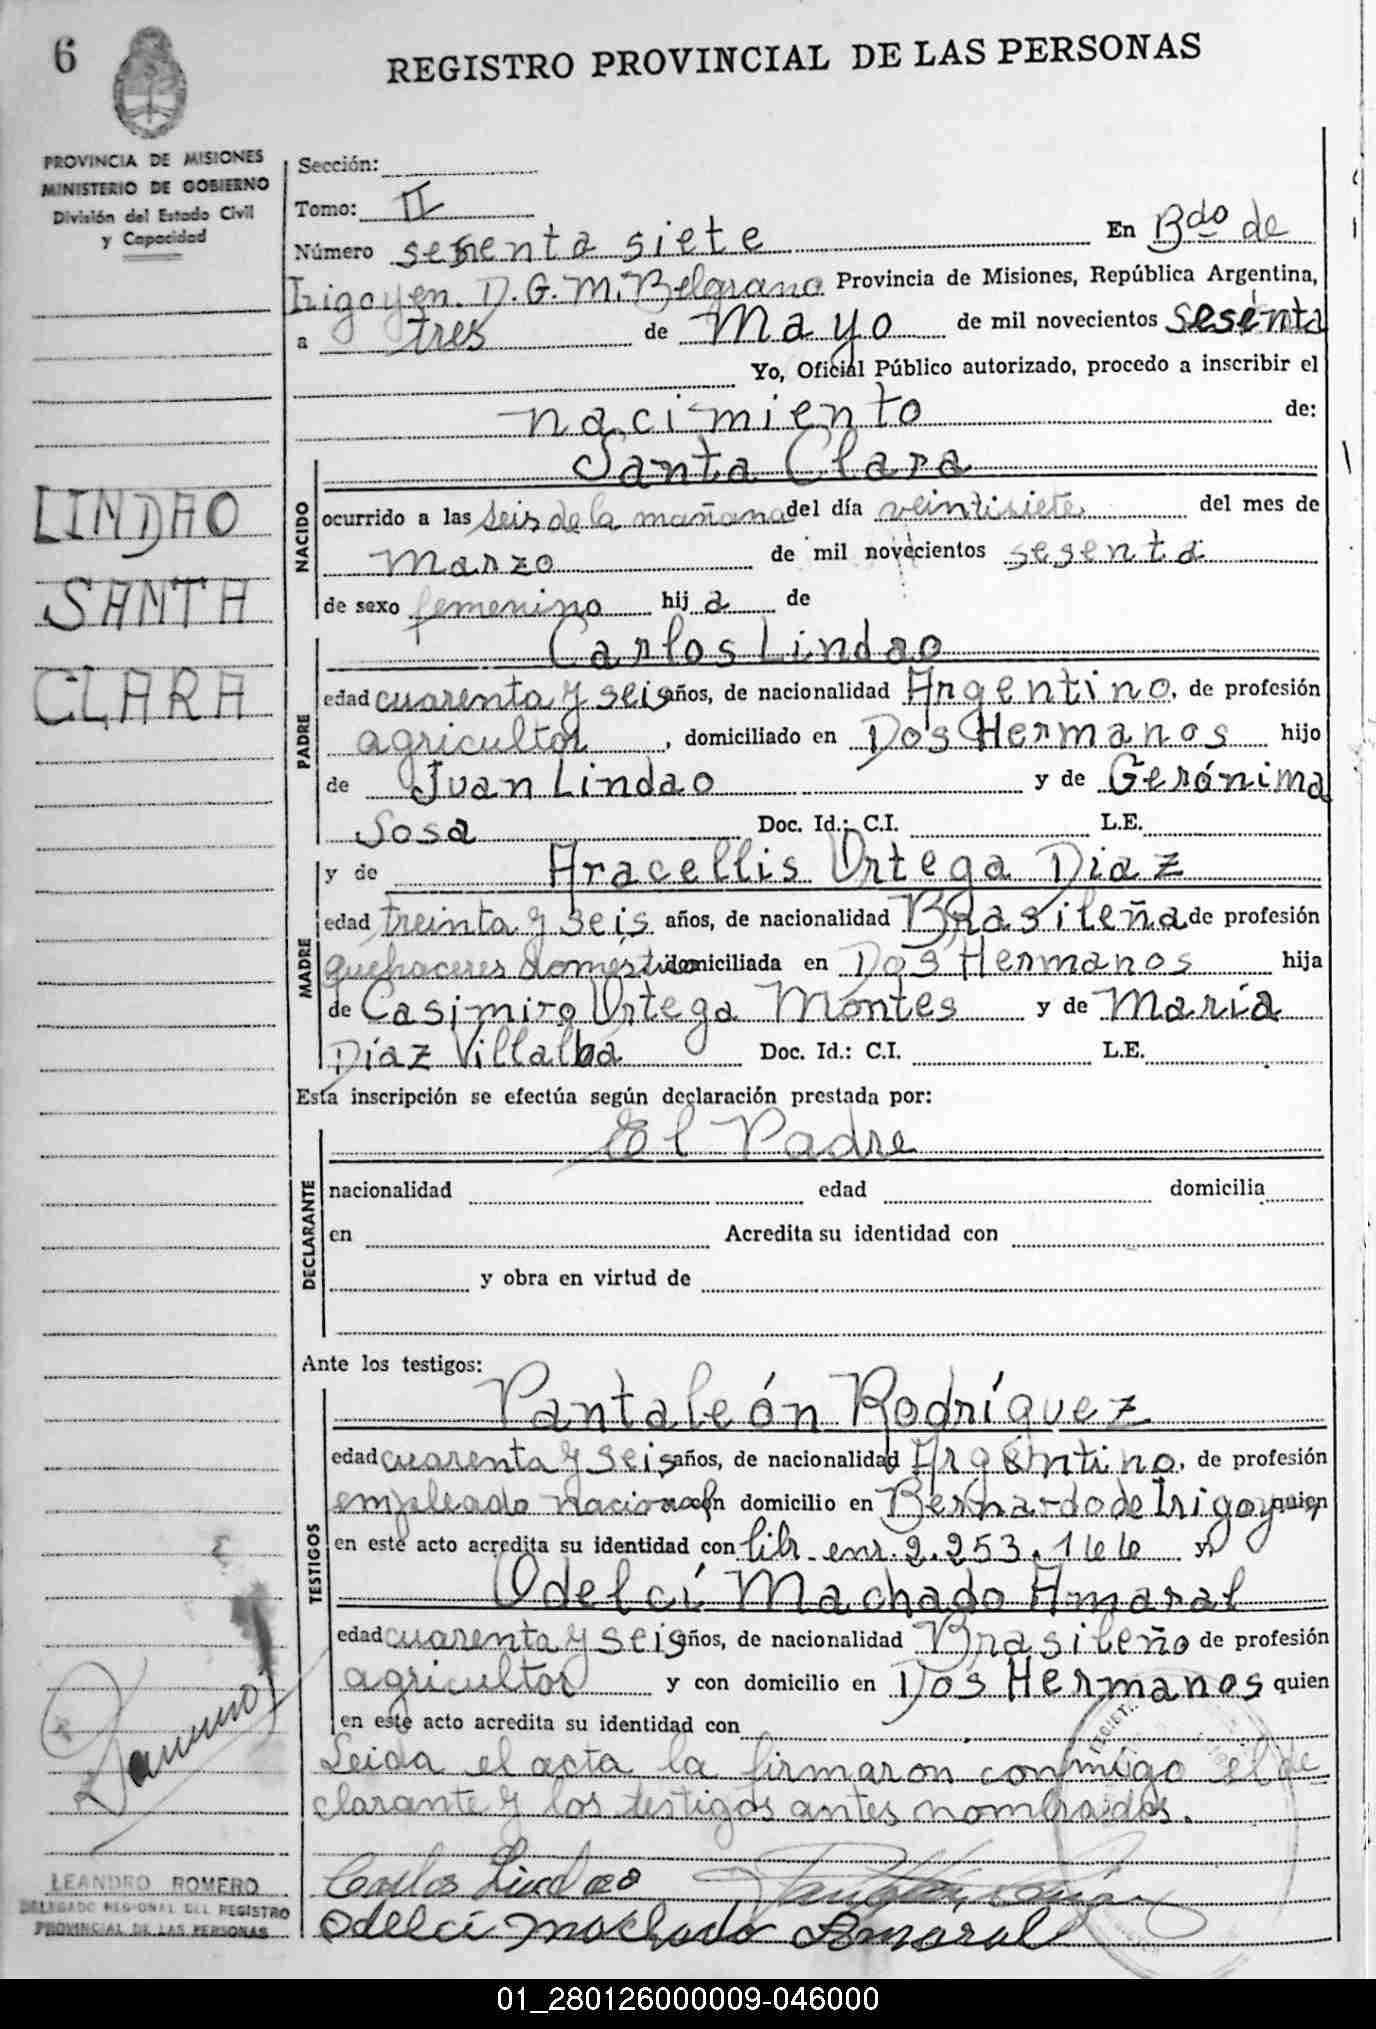 6
REGISTRO PROVINCIAL DE LAS PERSONAS
PROVINCIA DE MISIONES
MINISTERIO DE GOBIERNO
División del Estado Civil
y Capacidad
Sección:
Tomo: II
Número sesenta siete En Bdo de
Irigoyen. D. G. M. Belgrano Provincia de Misiones, República Argentina,
a tres de Mayo de mil novecientos sesenta
Yo, Oficial Público autorizado, procedo a inscribir el
nacimiento de:
LINDAO
SANTA
CLARA
NACIDO
Santa Clara
ocurrido a las seis de la mañana del día veintisiete del mes de
Marzo de mil novecientos sesenta
de sexo femenino hij a de
PADRE
Carlos Lindao
edad cuarenta y seis años, de nacionalidad Argentino, de profesión
agricultor, domiciliado en Dos Hermanos hijo
de Juan Lindao y de Gerónima
Sosa Doc. Id.: C.I. L.E.
MADRE
y de Aracellis Ortega Díaz
edad treinta y seis años, de nacionalidad Brasileña de profesión
quehaceres domésticos domiciliada en Dos Hermanos hija
de Casimiro Ortega Montes y de María
Díaz Villalba Doc. Id.: C.I. L.E.
Esta inscripción se efectúa según declaración prestada por:
DECLARANTE
El Padre
nacionalidad edad domicilia
en Acredita su identidad con
y obra en virtud de
Ante los testigos:
TESTIGOS
Pantaleón Rodríguez
edad cuarenta y seis años, de nacionalidad Argentino, de profesión
empleado nacional con domicilio en Bernardo de Irigoyen quien
en este acto acredita su identidad con lib. enr. 2.253.166 y
Odelcí Machado Amaral
edad cuarenta y seis años, de nacionalidad Brasileño de profesión
agricultor y con domicilio en Dos Hermanos quien
en este acto acredita su identidad con
Leida el acta la firmaron conmigo el de-
clarante y los testigos antes nombrados.
Carlos Lindao
Odelcí Machado Amaral
LEANDRO ROMERO
DELEGADO REGIONAL DEL REGISTRO
PROVINCIAL DE LAS PERSONAS
01_280126000009-046000